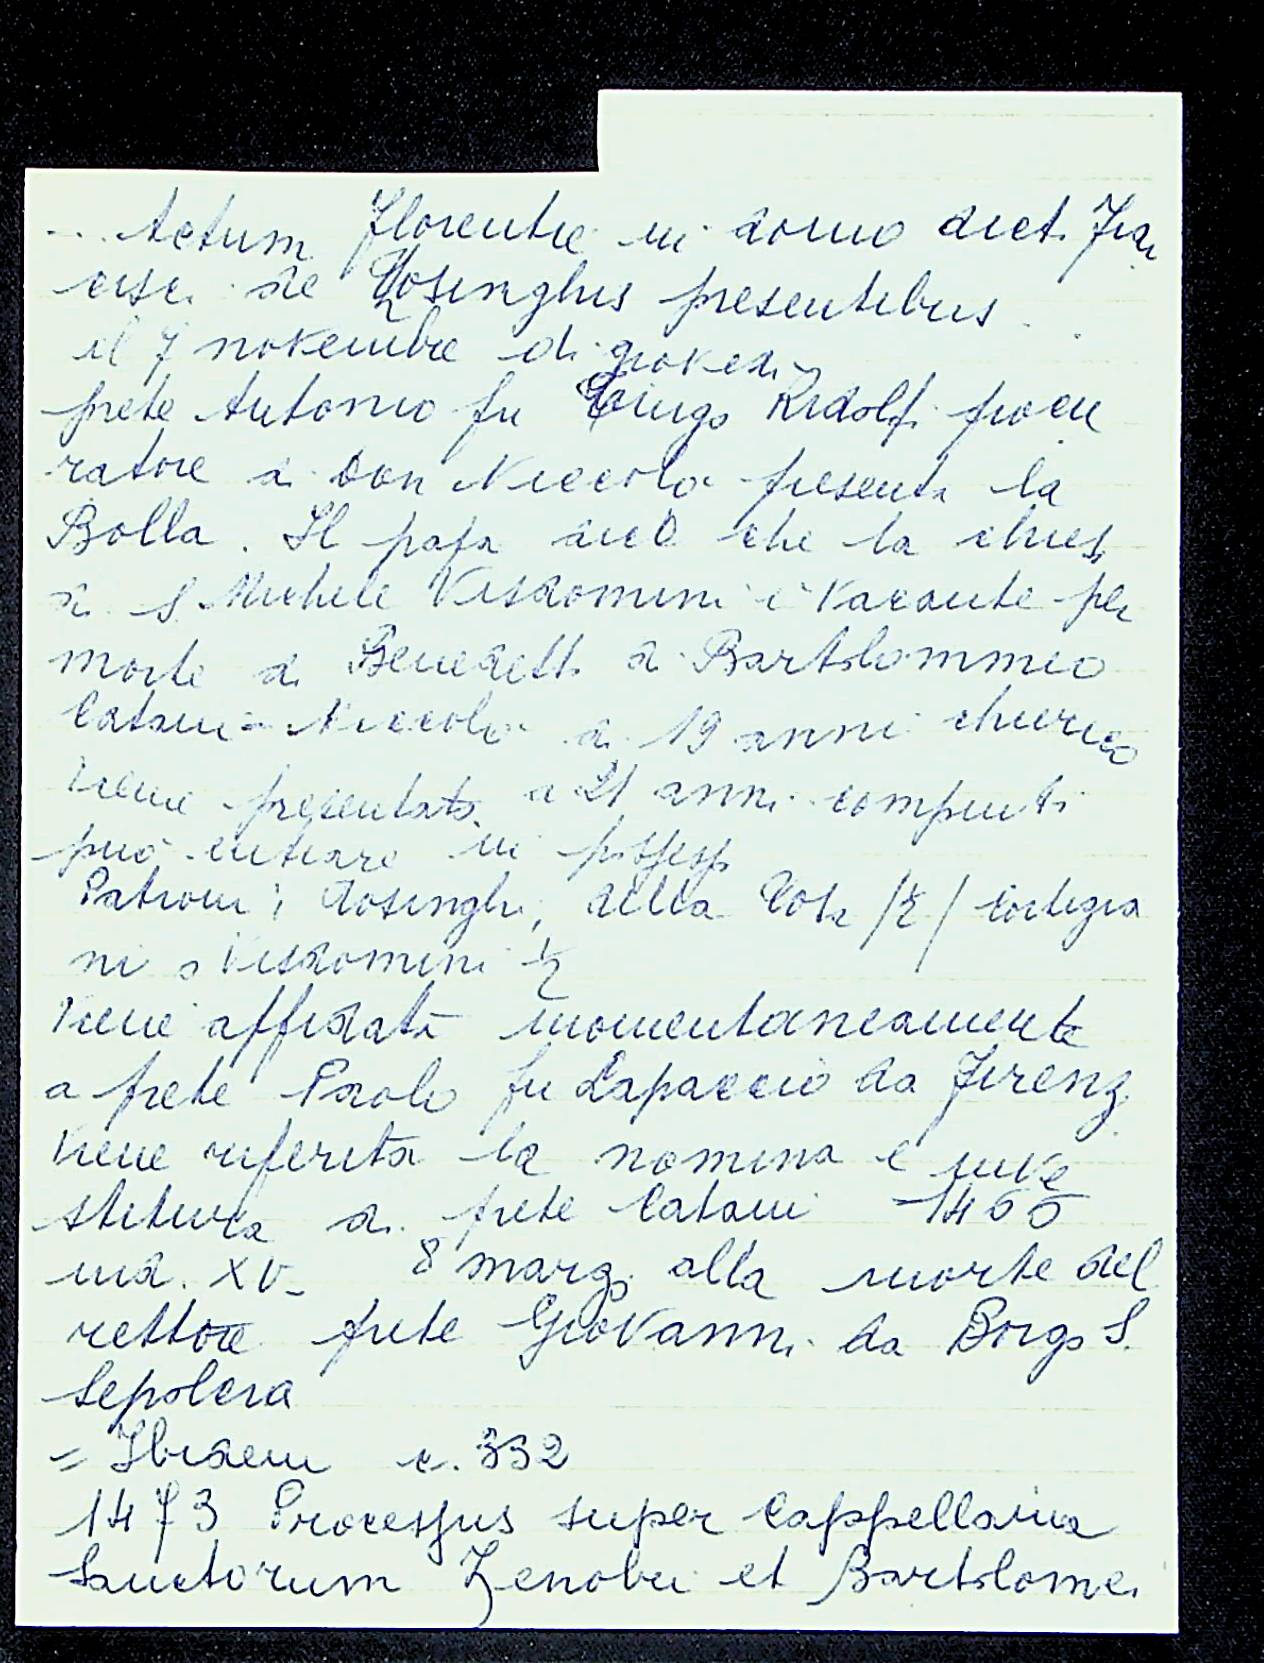 ... Actum Florentie in domo dict. Fran
cisci de Tosinghis presentibus ...
il 7 novembre di giovedì
prete Antonio fu Ridolfi procu
ratore di Don Niccolò presenta la
Bolla. Il papa dice che la chies
di S. Michele Visdomini è vacante per
morte di Benedetto di Bartolommeo
Catani - Niccolò di 19 anni chierico
viene presentato a 21 anni compiuti
può entrare in possesso
Patroni i Tosinghi, della Tosa /½/ Cortigia
ni o Visdomini ½
Viene affidata momentaneamente
a prete Paolo fu Lapaccio da Firenz
Viene riferita la nomina e inve
stitura di prete Catani 1466
ind. XV - 8 marzo alla morte del
rettore prete Giovanni da Borgo S.
Sepolcra
= Ibidem c. 332
1473 Processus super Cappellania
Sanctorum Zenobii et Bartolomei